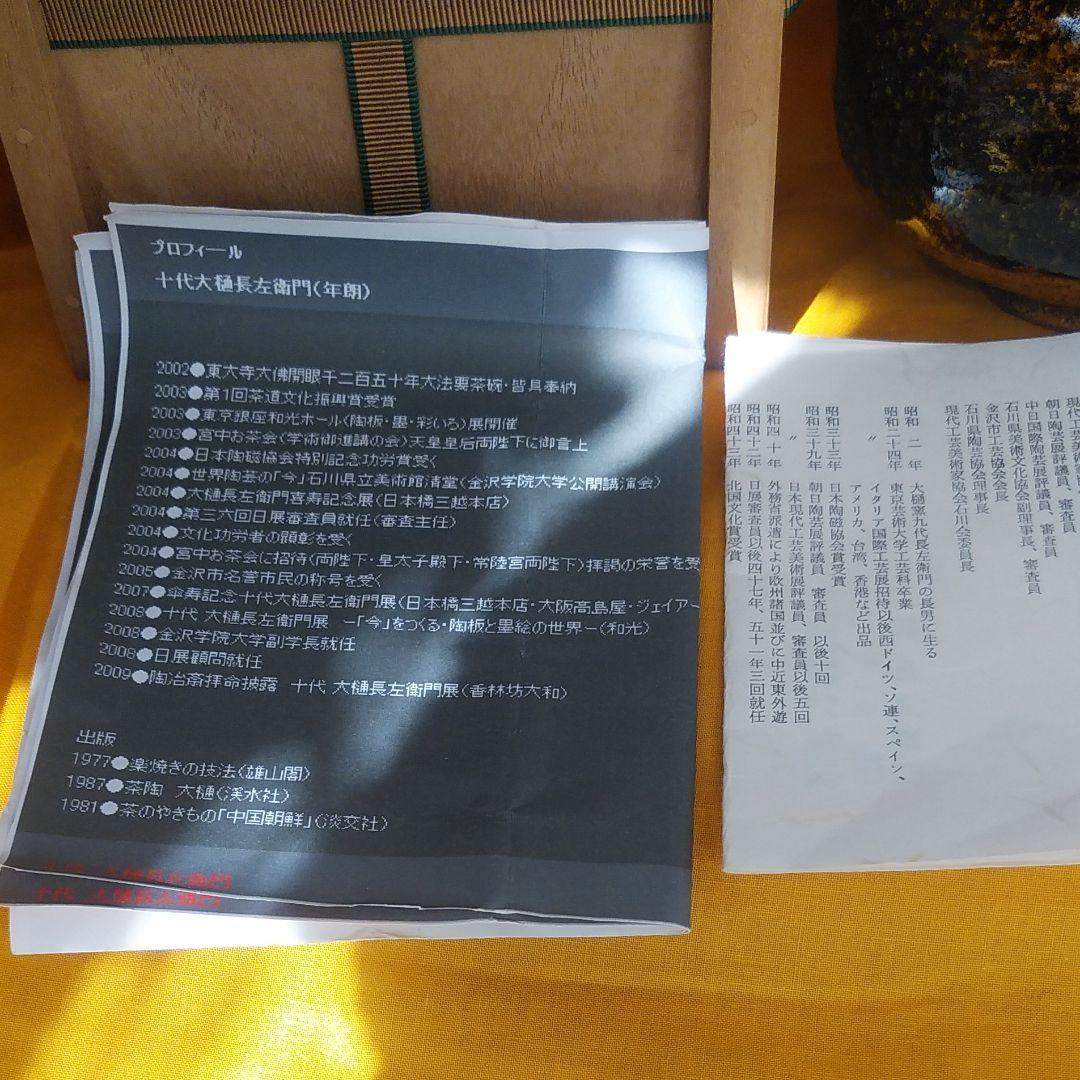 プロフィール
十代大樋長左衛門(年朗)
2002●東大寺大佛開眼千二百五十年大法要茶碗・皆具奉納
2003●第1回茶道文化振興賞受賞
2003●東京銀座和光ホール〈陶板・墨・彩いろ〉展開催
2003●宮中お茶会〈学術御進講の会〉天皇皇后両陛下に御言上
2004●日本陶磁協会特別記念功労賞受く
2004●世界陶芸の「今」石川県立美術館講堂〈金沢学院大学公開講演会〉
2004●大樋長左衛門喜寿記念展〈日本橋三越本店〉
2004●第三六回日展審査員就任〈審査主任〉
2004●文化功労者の顕彰を受く
2004●宮中お茶会に招待〈両陛下・皇太子殿下・常陸宮両陛下〉拝謁の栄誉を受
2005●金沢市名誉市民の称号を受く
2007●傘寿記念十代大樋長左衛門展〈日本橋三越本店・大阪高島屋・ジェイアー
2008●十代 大樋長左衛門展 ー「今」をつくる・陶板と墨絵の世界ー〈和光〉
2008●金沢学院大学副学長就任
2008●日展顧問就任
2009●陶冶斎拝命披露 十代 大樋長左衛門展〈香林坊大和〉
出版
1977●楽焼きの技法〈雄山閣〉
1987●茶陶 大樋〈渓水社〉
1981●茶のやきもの「中国朝鮮」〈淡交社〉
十代 大樋長左衛門
十代 大樋長左衛門
現代工芸美術 審査員
朝日陶芸展評議員、審査員
中日国際陶芸展評議員、審査員
石川県美術文化協会副理事長、
金沢市工芸協会会長
石川県陶芸協会理事長
現代工芸美術家協会石川会委員長
昭和 二年 大樋窯九代長左衛門の長男に生る
昭和二十四年 東京芸術大学工芸科卒業
〃 イタリア国際工芸展招待以後西ドイツ、ソ連、スペイン、
アメリカ、台湾、香港など出品
昭和三十三年 日本陶磁協会賞受賞
昭和三十九年 朝日陶芸展評議員 審査員 以後十回
〃 日本現代工芸美術展評議員、審査員以後五回
昭和四十年 外務省派遣により欧州諸国並びに中近東外遊
昭和四十二年 日展審査員以後四十七年、五十一年三回就任
昭和四十三年 北国文化賞受賞